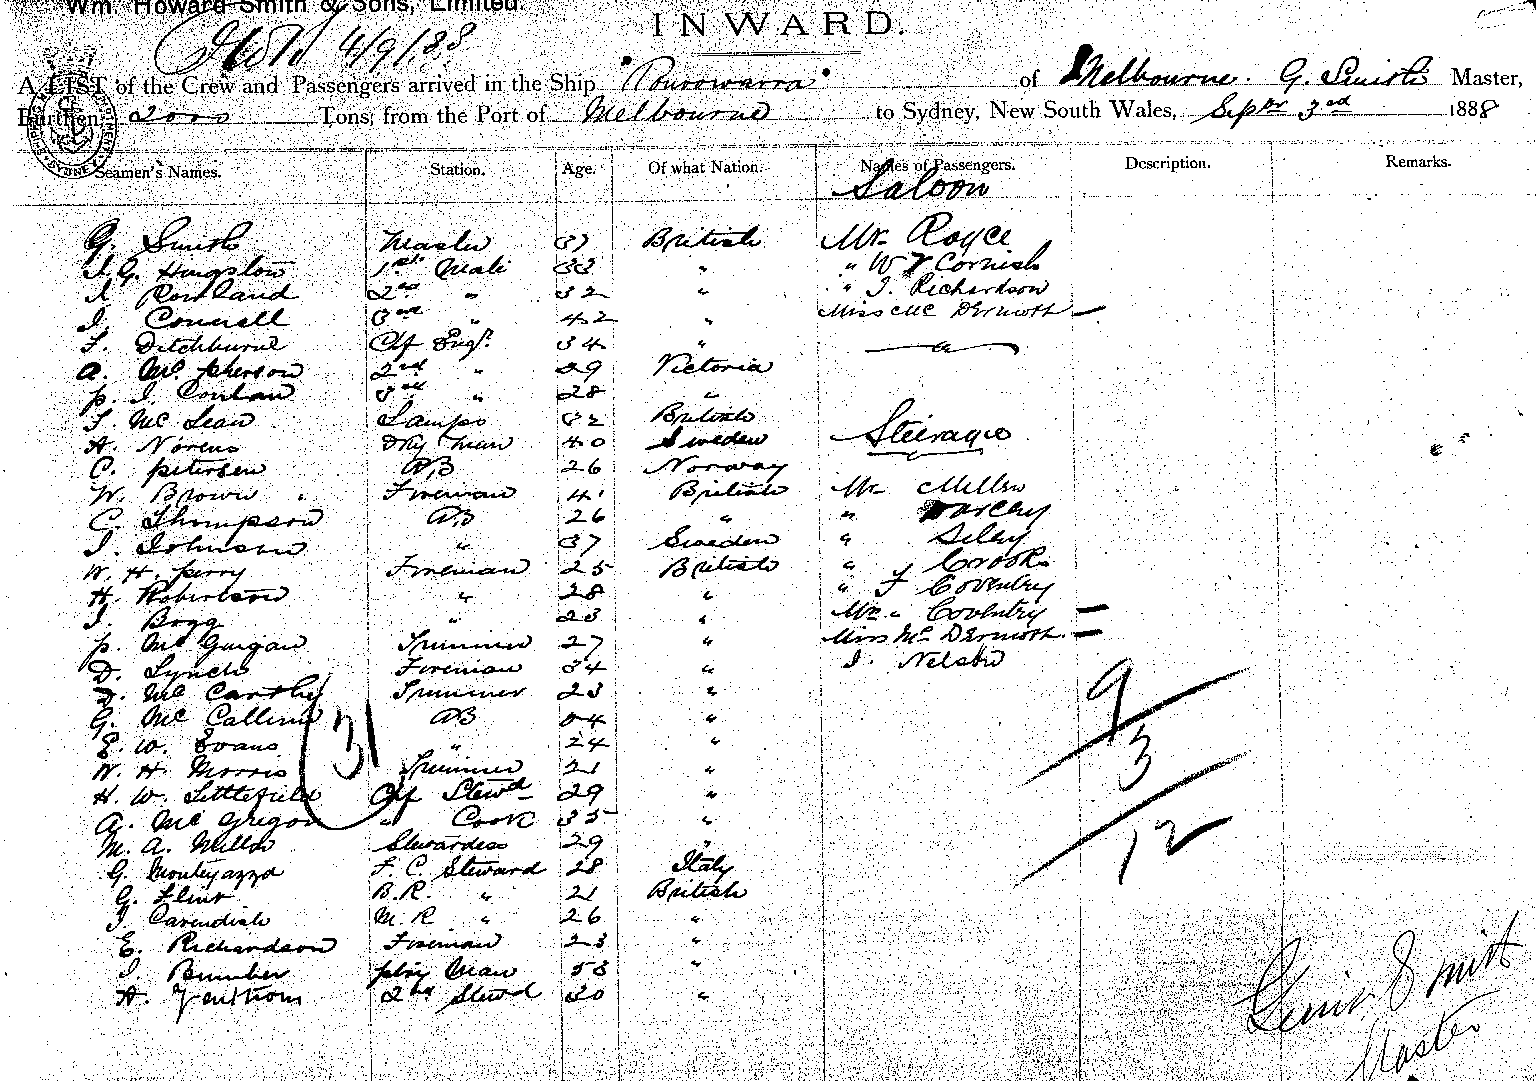 Wm. Howard Smith & Sons, Limited.
INWARD.
4/9/88
A LIST of the Crew and Passengers arrived in the Ship "Burrowarra" of Melbourne. G. Smith Master,
Burthen 2000 Tons, from the Port of Melbourne to Sydney, New South Wales, Sepbr 3rd 1888
Seamen's Names. Station. Age. Of what Nation. Names of Passengers. Description. Remarks.
Saloon
G. Smith Master 37 British Mr. Royce
J. G. Hingston 1st Mate 33 " " W J Cornish
Rowland 2nd " 32 " " J. Richardson
J. Connell 3rd " 42 " Miss Mc Dermott —
F. Ditchburne Chf Engr. 34 "
A. Mc. pherson 2nd " 29 Victoria
p. J. Conlan 3rd " 28 "
J. Mc Lean Lamps 32 British
A. Norens Dky man 40 Sweden Steerage
C. petersen AB 26 Norway
W. Brown Fireman 41 British Mr Miller
C. Thompson AB 26 " " Darcey
J. Johnson " 37 Sweden " Selby
W. H. perry Fireman 25 British " Crooks
H. Robertson " 28 " " F Coventry
J. Bogg " 23 " Mrs " Coventry —
p. Mc Guigan Trimmer 27 " Miss Mc Dermott —
D. Lynch Fireman 34 " J. Nelson
J. Mc Carthy Trimmer 23 "
G. Mc Callum AB 34 "
E. W. Evans " 24 "
W. H. Morris Trimmer 21 "
H. W. Littlefield Chf Stewd 29 "
A. Mc Gregor " Cook 35 "
M. A. Miller Stewardess 29 "
G. Monteyazzo F. C. Steward 28 Italy
G. Flint B.R. " 21 British
J. Cavendish M.R " 26 "
E. Richardson Fireman 23 "
J. Bumber pty Man 53 "
A. 2nd Stewd 30 "
31
9
3
12
Smith
Master